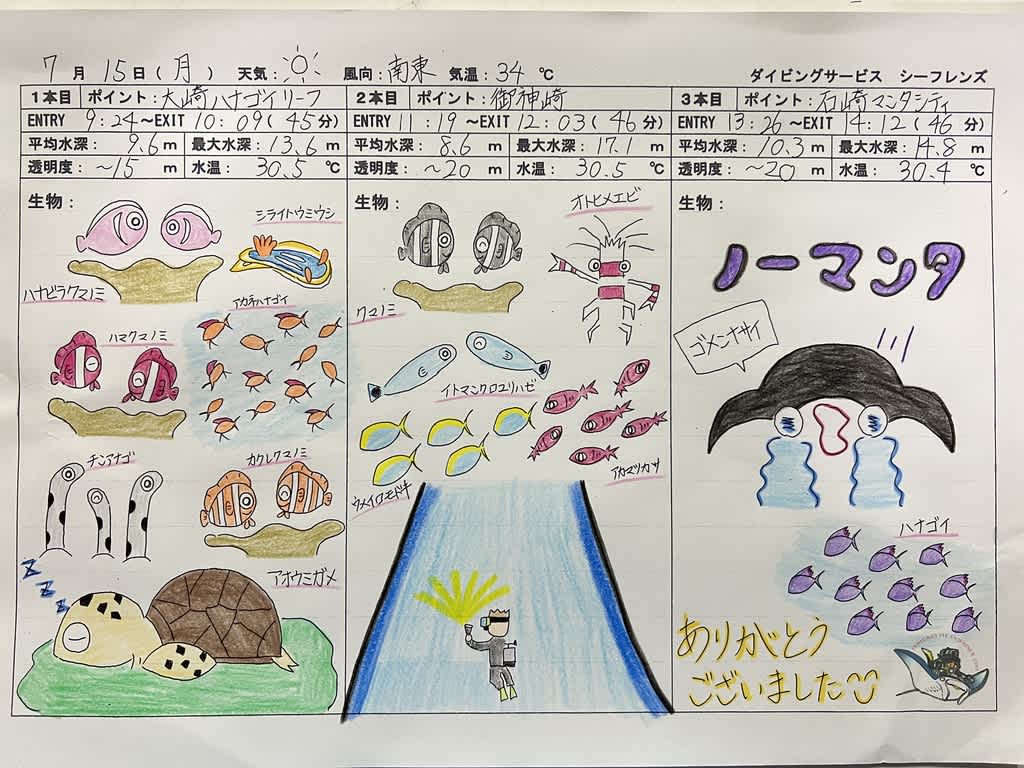 7月15日(月) 天気: 風向:南東 気温:34℃
ダイビングサービス シーフレンズ
1本目 ポイント:大崎ハナゴイリーフ
ENTRY 9:24~EXIT 10:09(45分)
平均水深: 9.6m 最大水深:13.6m
透明度: ~15m 水温: 30.5℃
生物:
シライトウミウシ
ハナビラクマノミ
アカネハナゴイ
ハマクマノミ
チンアナゴ
カクレクマノミ
アオウミガメ
zzz
2本目 ポイント:御神崎
ENTRY 11:19~EXIT 12:03(46分)
平均水深: 8.6m 最大水深:17.1m
透明度: ~20m 水温: 30.5℃
生物:
オトヒメエビ
クマノミ
イトマンクロユリハゼ
アカマツカサ
ウメイロモドキ
3本目 ポイント:石崎マンタシティ
ENTRY 13:26~EXIT 14:12(46分)
平均水深: 10.3m 最大水深:14.8m
透明度: ~20m 水温: 30.4℃
生物:
ノーマンタ
ゴメンナサイ
ハナゴイ
ありがとう
ございました